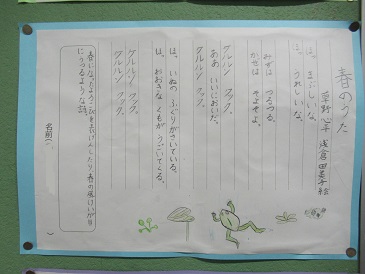 春のうた
草野心平 浅倉田美子絵
ほっ まぶしいな。
ほっ うれしいな。
みずは つるつる。
かぜは そよそよ。
ケルルン クック。
ああいいにおいだ。
ケルルン クック。
ほっ いぬのふぐりがさいている。
ほっ おおきなくもがうごいてくる。
ケルルン クック。
ケルルン クック。
名前(